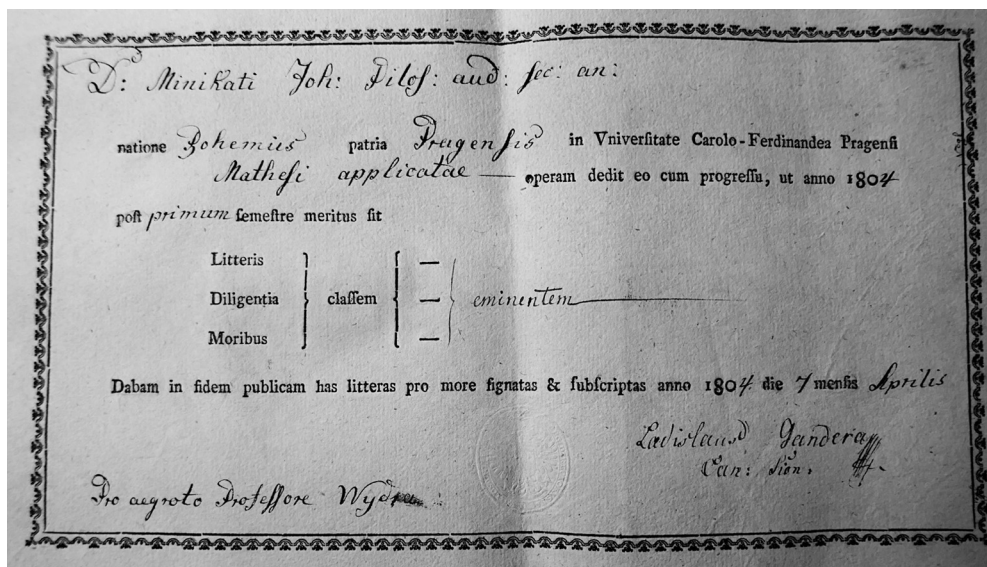 D: Minikati Joh: Filoſ: aud: ſec: an:
natione Bohemus patria Pragenſis in Vniverſitate Carolo-Ferdinandea Pragenſi
Matheſi applicatae — operam dedit eo cum progreſſu, ut anno 1804
poſt primum ſemeſtre meritus ſit
Litteris
Diligentia claſſem — eminentem
Moribus
Dabam in fidem publicam has litteras pro more ſignatas & ſubſcriptas anno 1804 die 7 menſis Aprilis
Ladislaus Jandera
Can: Sion:
Pro aegroto Profeſſore Wydra